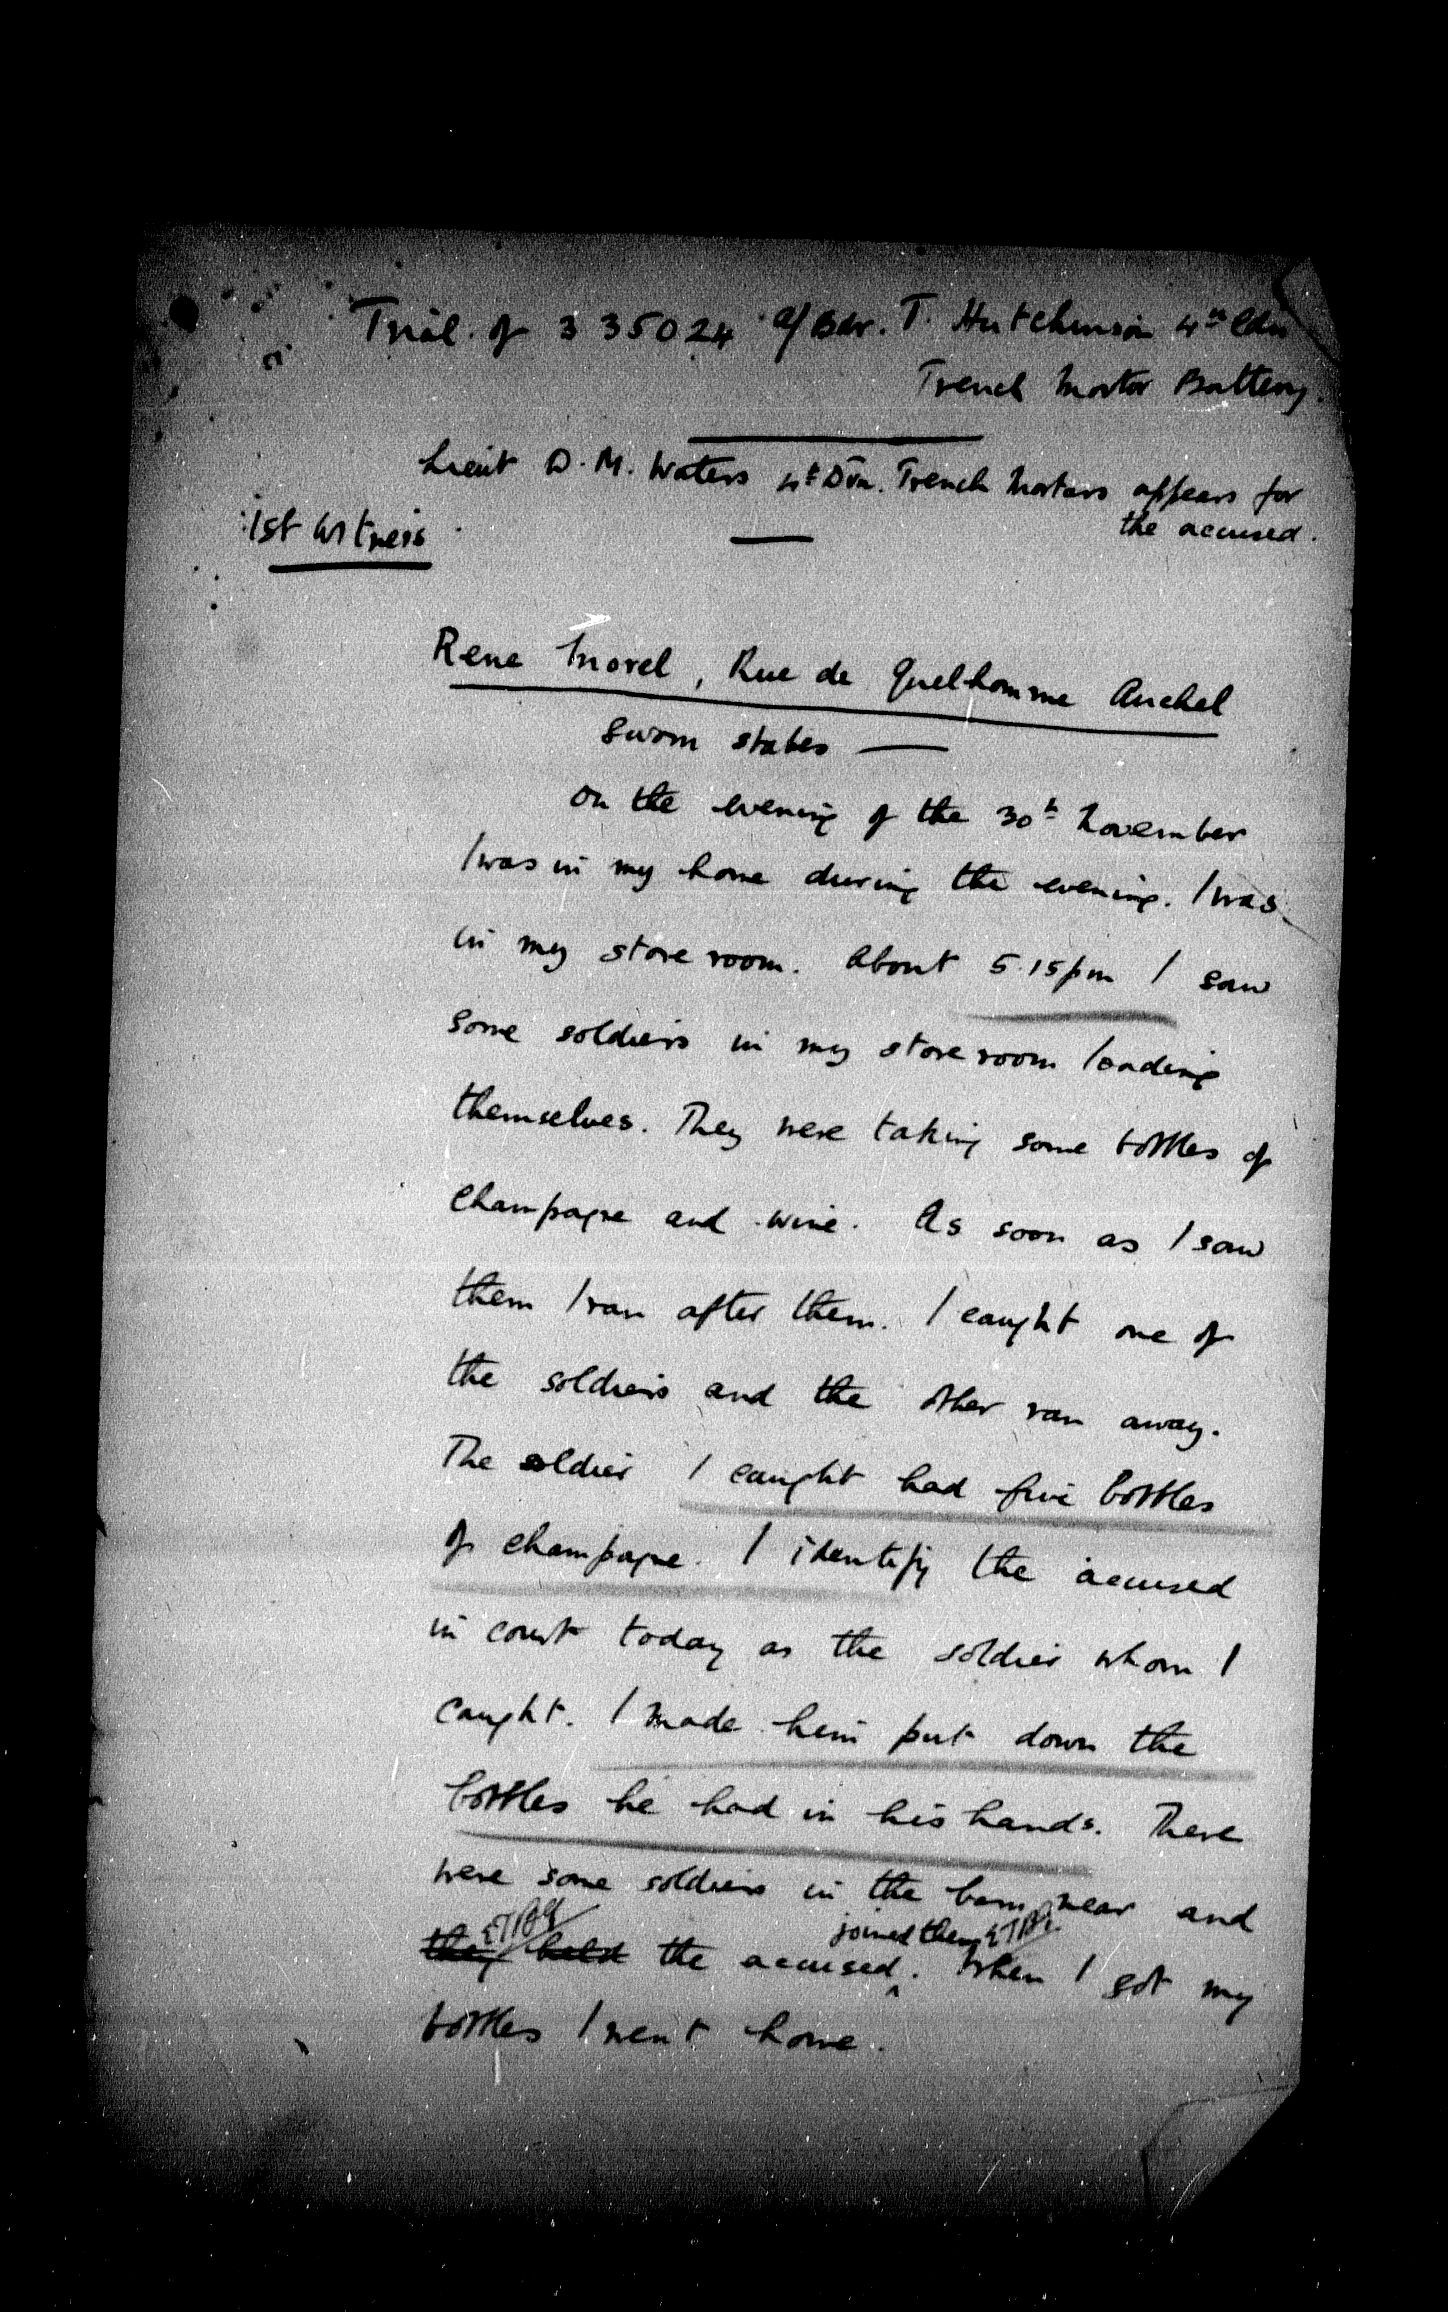 Trial of 335024 a/Bdr. T. Hutchinson 4th Cdn
Trench Mortar Battery.
Lieut D.M. Waters 4th Dvn. Trench Mortars appears for
the accused.
1st Witness
Rene Morel, Rue de Quelhomme Auchel
Sworn states —
On the evening of the 30th November
I was in my home during the evening. I was
in my store room. About 5.15pm I saw
some soldiers in my store room loading
themselves. They were taking some bottles of
champagne and wine. As soon as I saw
them I ran after them. I caught one of
the soldiers and the other ran away.
The soldier I caught had five bottles
of champagne. I identify the accused
in court today as the soldier whom I
caught. I made him put down the
bottles he had in his hands. There
were some soldiers in the barn near and
joined them
they held the accused. When I got my
bottles I went home.